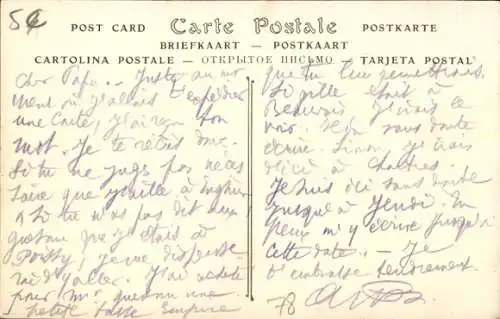 5€
POST CARD Carte Postale POSTKARTE
BRIEFKAART — POSTKAART
CARTOLINA POSTALE — ОТКРЫТОЕ ПИСЬМО — TARJETA POSTAL
Cher Papa. — Juste au mo
ment où j'allais t'expédier
une Carte, j'ai reçu ton
mot. Je te récris donc.
Si tu ne juges pas néces
saire que j'aille à
Si tu n'as pas dit aux
que j'étais à
Poissy, je me dispense
rai d'aller. J'ai acheté
pour une
petite tasse Empire
que tu
Si elle était à
Beauvais j'irais le
voir. sans doute
écrire. Sinon, j'irais
d'ici à Chartres.
Je suis ici sans doute
jusqu'à Jeudi. Tu
peux m'y écrire jusqu'à
cette date. — Je
t'embrasse tendrement.
78